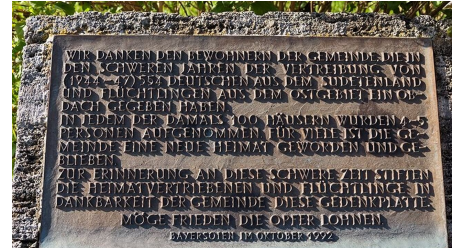 WIR DANKEN DEN BEWOHNERN DER GEMEINDE, DIE IN
DEN SCHWEREN JAHREN DER VERTREIBUNG VON
DEUTSCHEN AUS DEM SUDETENLAND
UND FLÜCHTLINGEN AUS DEM OSTGEBIET EIN OB-
DACH GEGEBEN HABEN.
IN JEDEM DER DAMALS 100 HÄUSERN WURDEN 4-5
PERSONEN AUFGENOMMEN. FÜR VIELE IST DIE GE-
MEINDE EINE NEUE HEIMAT GEWORDEN UND GE-
BLIEBEN.
ZUR ERINNERUNG AN DIESE SCHWERE ZEIT STIFTEN
DIE HEIMATVERTRIEBENEN UND FLÜCHTLINGE IN
DANKBARKEIT DER GEMEINDE DIESE GEDENKPLATTE.
MÖGE FRIEDEN DIE OPFER LOHNEN
BAYERSOIEN IM OKTOBER 1992